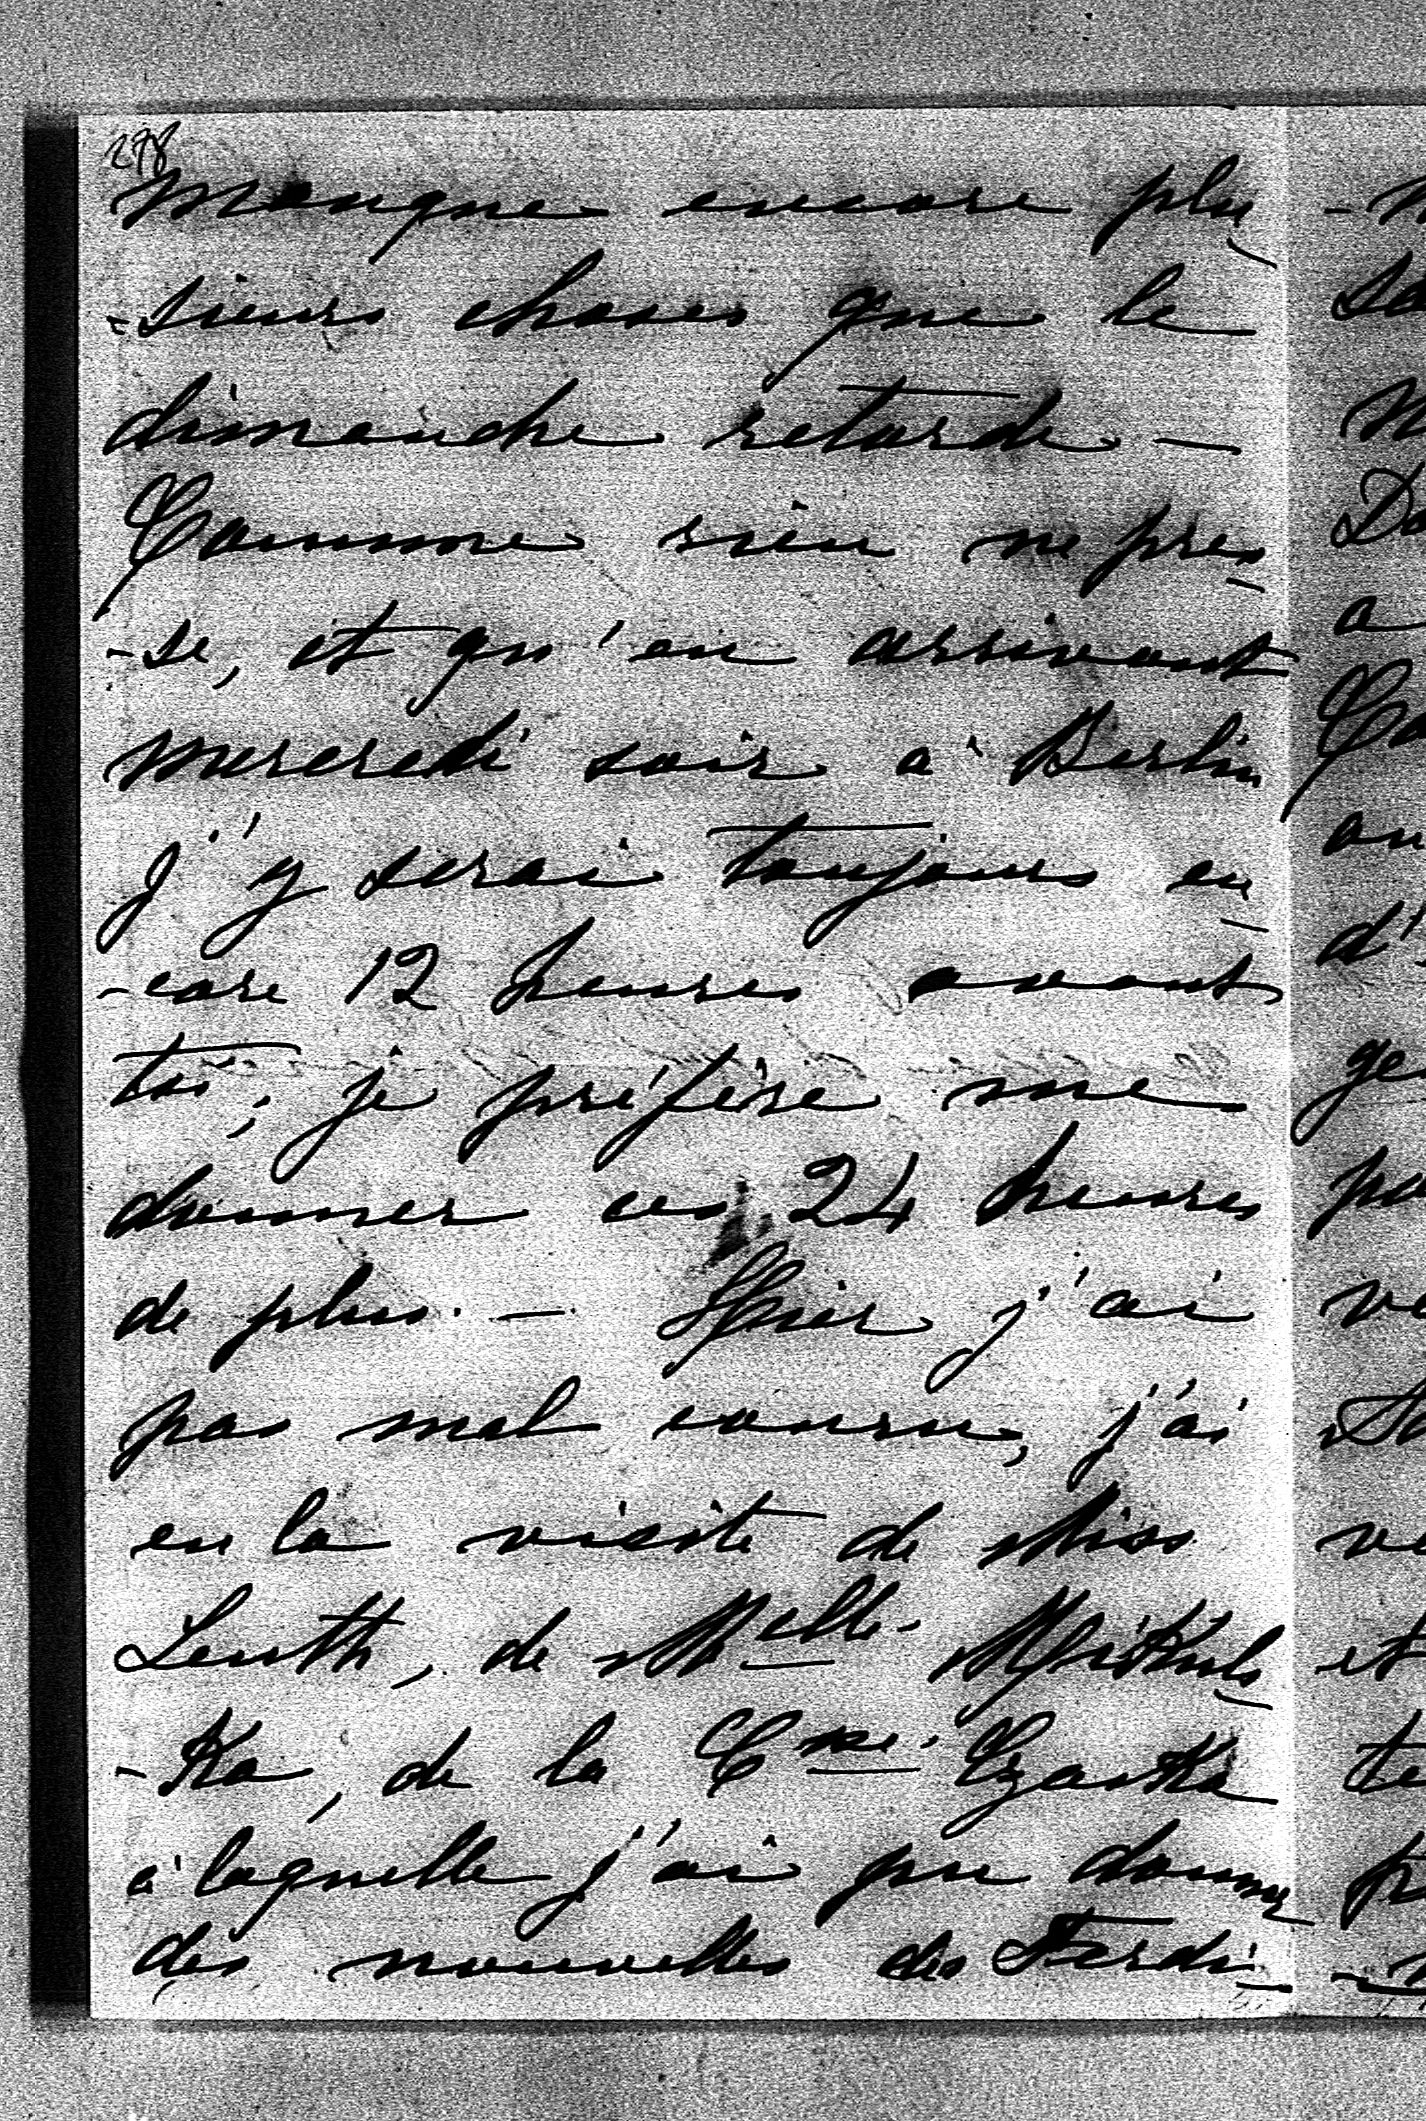 298
manque encore plu-
-sieurs choses que le
dimanche retarde —
Comme rien ne pres-
-se, et qu'en arrivant
mercredi soir à Berlin
j'y serai toujours en-
-core 12 heures avant
toi, je préfère me
donner ces 24 heures
de plus. — Hier j'ai
pas mal couru, j'ai
eu la visite de Miss
Leuth, de Melle.
-Ka, de la Csse. Czaska
à laquelle j'ai pu donner
des nouvelles des Ferdi-